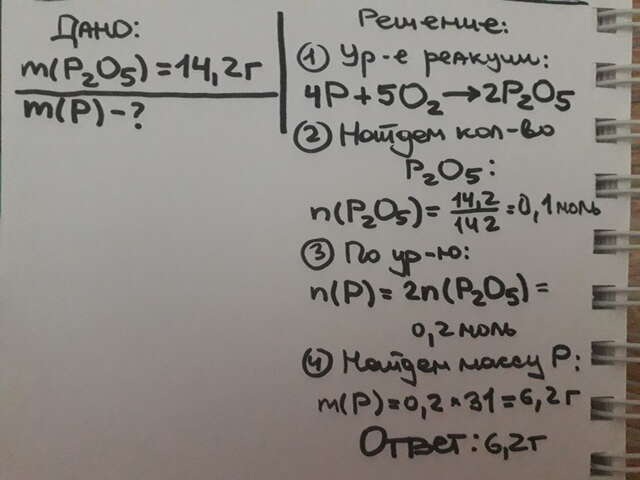 Дано:
m(P₂O₅)=14,2г
m(P)-?
Решение:
① Ур-е реакции:
4P+5O₂→2P₂O₅
② Найдем кол-во
P₂O₅:
n(P₂O₅)=14,2/142=0,1моль
③ По ур-ю:
n(P)=2n(P₂O₅)=
0,2моль
④ Найдем массу P:
m(P)=0,2×31=6,2г
Ответ:6,2г